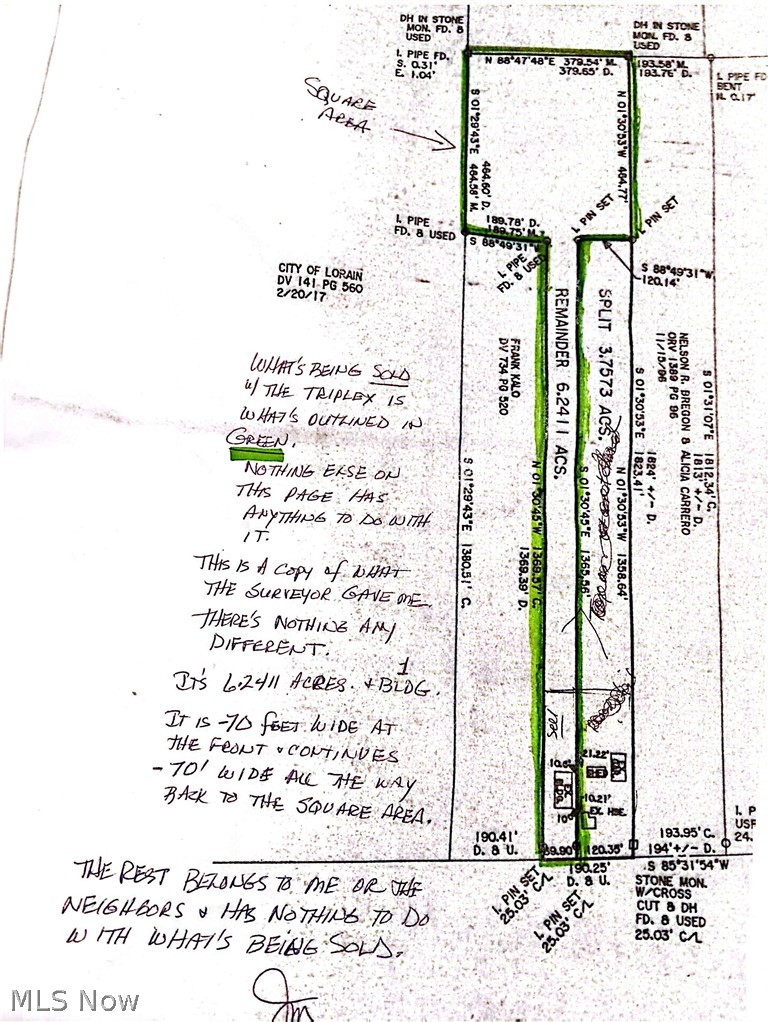 DH IN STONE
MON. FD. &
USED
DH IN STONE
MON. FD. &
USED
I. PIPE FD.
S. 0.31'
E. 1.04'
N 88°47'48"E 379.54' M.
379.65' D.
193.58' M.
193.76' D.
I. PIPE FD
BENT
N. 0.17'
SQUARE
AREA
S 01°29'43"E
464.60' D.
464.58' M.
N 01°30'53"W 464.77'
I. PIN SET
I. PIN SET
I. PIPE
FD. & USED
189.78' D.
189.75' M.
S 88°49'31"W
I. PIPE
FD. & USED
S 88°49'31"W
120.14'
CITY OF LORAIN
DV 141 PG 560
2/20/17
REMAINDER 6.2411 ACS.
SPLIT 3.7573 ACS.
FRANK KALO
DV 734 PG 520
NELSON R. BREGON & ALICIA CARRERO
ORV 1389 PG 96
11/15/96
S 01°31'07"E 1812.34' C.
1813' +/- D.
S 01°30'53"E 1824' +/- D.
1823.41'
S 01°29'43"E 1380.51' C.
N 01°30'45"W 1369.57' C.
1369.39' D.
S 01°30'45"E 1365.56'
N 01°30'53"W 1358.64'
WHAT'S BEING SOLD
W/ THE TRIPLEX IS
WHAT'S OUTLINED IN
GREEN.
NOTHING ELSE ON
THIS PAGE HAS
ANYTHING TO DO WITH
IT.
THIS IS A COPY OF WHAT
THE SURVEYOR GAVE ME.
THERE'S NOTHING ANY
DIFFERENT.
IT'S 6.2411 ACRES. + 1 BLDG.
IT IS ~70 FEET WIDE AT
THE FRONT & CONTINUES
~70' WIDE ALL THE WAY
BACK TO THE SQUARE AREA.
21.22'
10.6'
SHED
EX.
BLDG.
10.21'
10'
EX. HSE.
190.41'
D. & U.
69.90'
120.35'
193.95' C.
194' +/- D.
190.25'
D. & U.
S 85°31'54"W
I. PIN SET
25.03' C/L
I. PIN SET
25.03' C/L
STONE MON.
W/CROSS
CUT & DH
FD. & USED
25.03' C/L
I. P
USF
24.
THE REST BELONGS TO ME OR THE
NEIGHBORS & HAS NOTHING TO DO
WITH WHAT'S BEING SOLD.
MLS Now